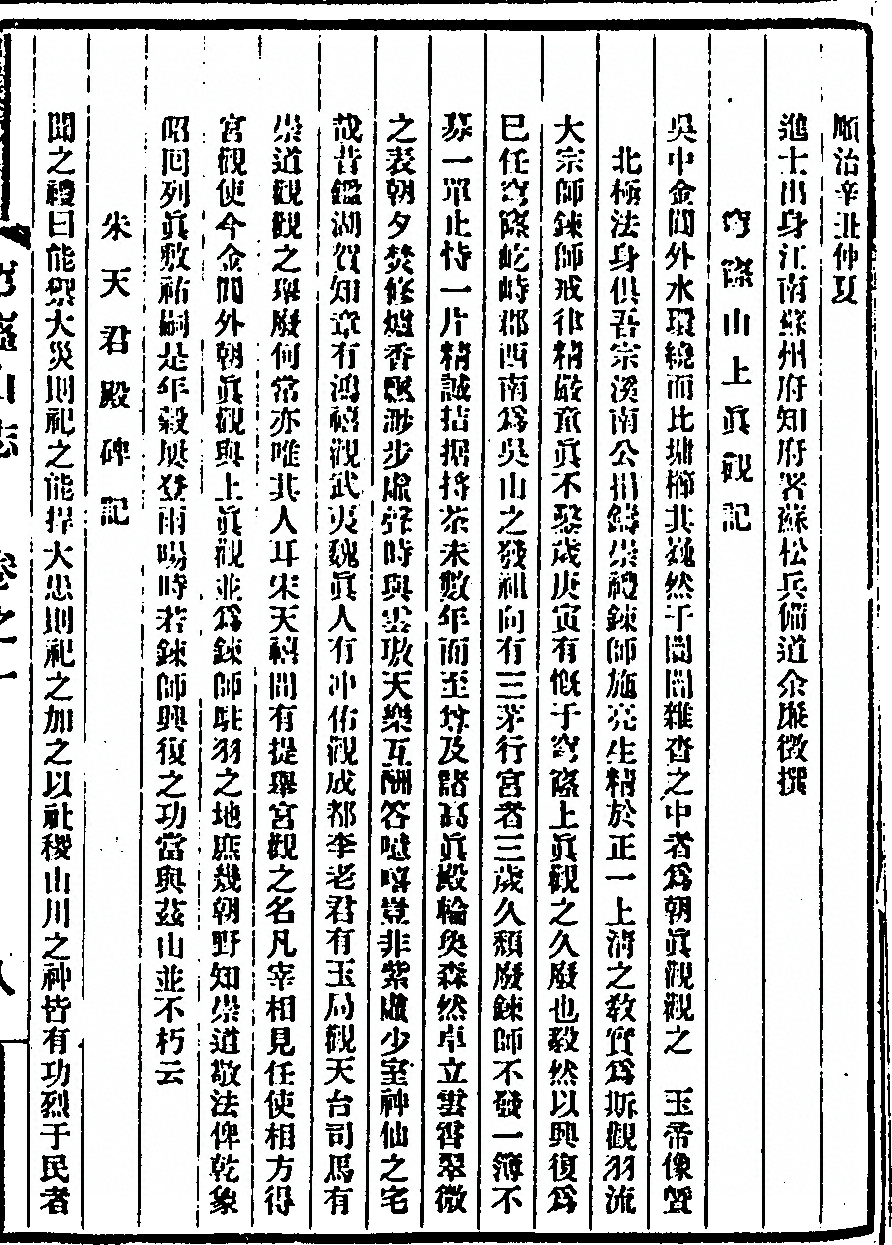 順治辛丑仲夏
進士出身江南蘇州府知府署蘇松兵備道余廉徵撰
穹窿山上眞觀記
吳中金閶外水環繞而比墉櫛其巍然于闤闠雜沓之中者爲朝眞觀觀之　玉帝像暨
北極法身俱吾宗溪南公捐鑄崇禮鍊師施亮生精於正一上淸之敎實爲斯觀羽流
大宗師鍊師戒律精嚴童眞不婜歲庚寅有慨于穹窿上眞觀之久廢也毅然以興復爲
已任穹窿屹峙郡西南爲吳山之發祖向有三茅行宮者三歲久頹廢鍊師不發一簿不
募一單止恃一片精誠拮据捋荼未數年而至尊及諸高眞殿輪奐森然卓立雲霄翠微
之表朝夕焚修爐香飄渺步虛聲時與雲璈天樂互酬答噫嘻豈非紫虛少室神仙之宅
哉昔鑑湖賀知章有鴻禧觀武夷魏眞人有冲佑觀成都李老君有玉局觀天台司馬有
崇道觀觀之舉廢何常亦唯其人耳宋天禧間有提舉宮觀之名凡宰相見任使相方得
宮觀使今金閶外朝眞觀與上眞觀並爲鍊師駐羽之地庶幾朝野知崇道敬法俾乾象
昭回列眞敷祐嗣是年穀屢登雨暘時若鍊師興復之功當與茲山並不朽云
朱天君殿碑記
聞之禮曰能禦大災則祀之能捍大患則祀之加之以社稷山川之神皆有功烈于民者
穹窿山志　卷之一
八